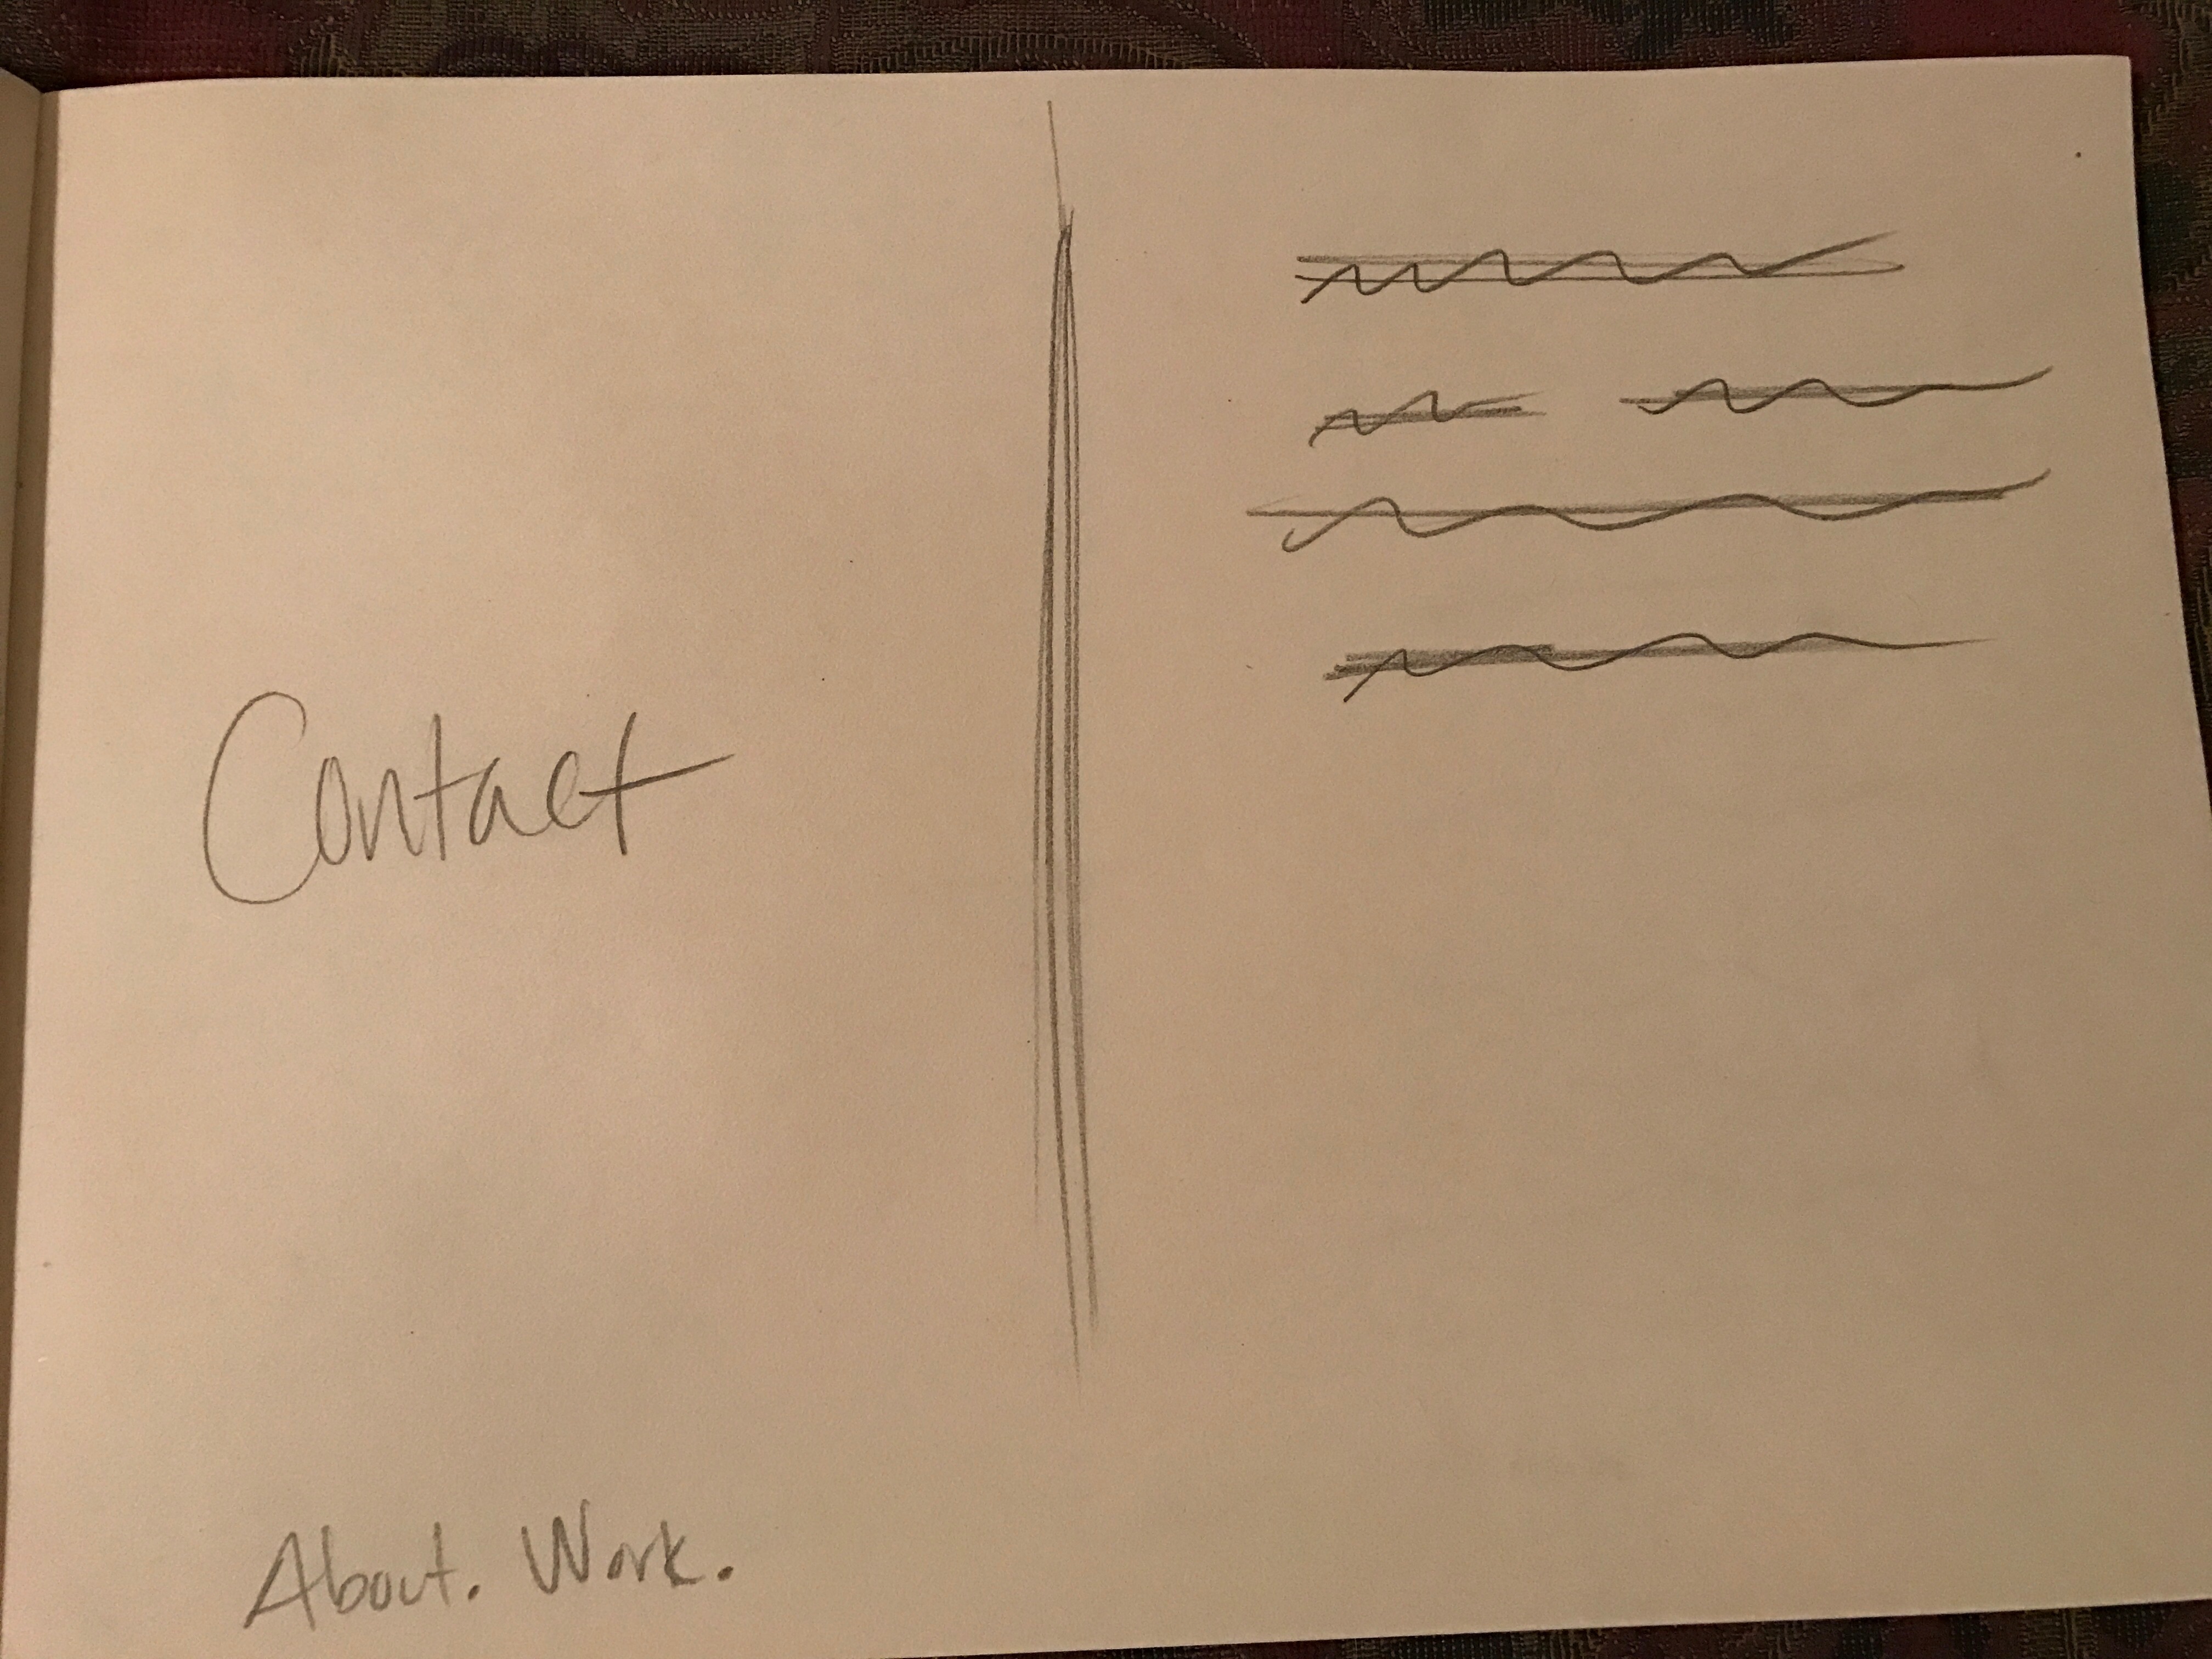 Contact
About. Work.